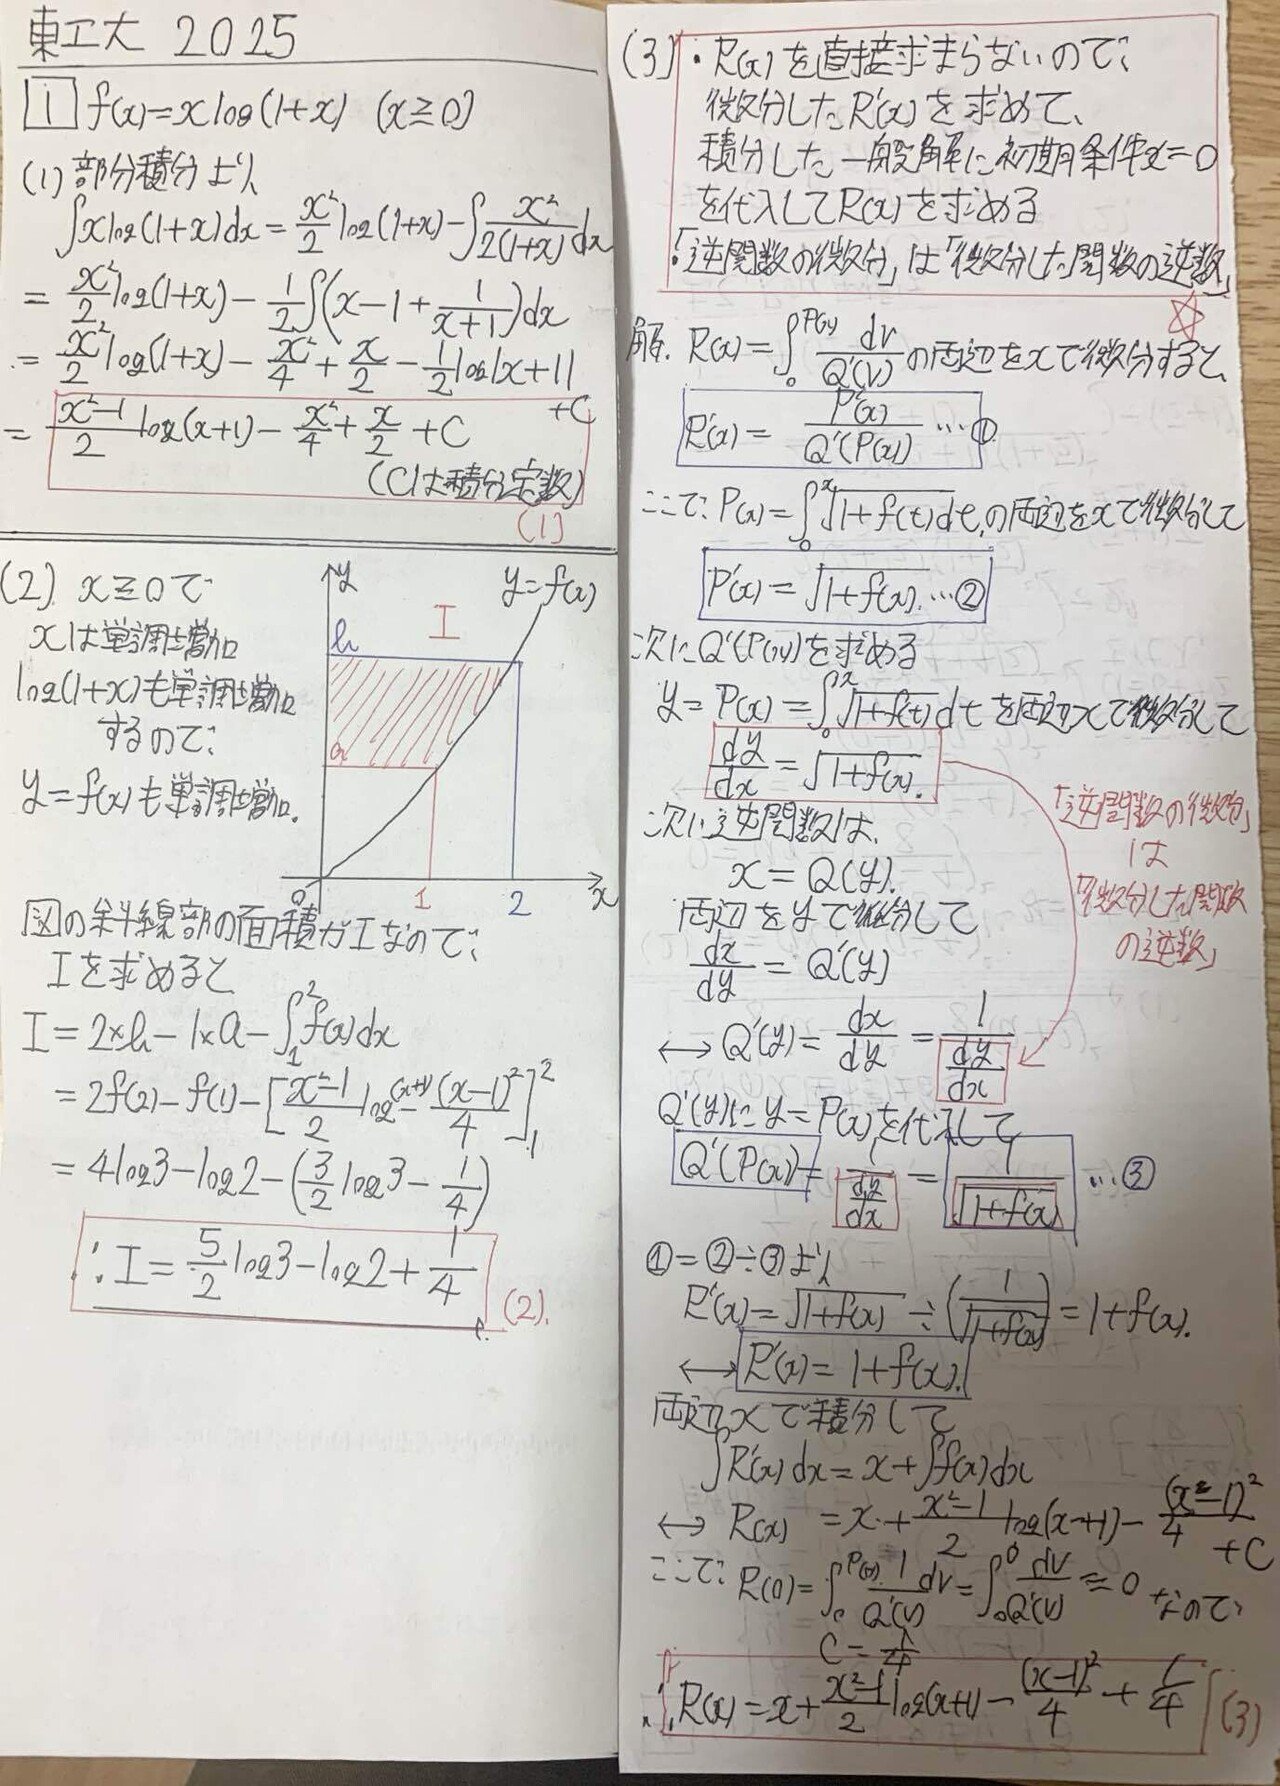 東工大 2025
1 f(x)=xlog(1+x) (x≧0)
(1) 部分積分より
∫xlog(1+x)dx = x²/2 log(1+x) - ∫x²/2(1+x) dx
= x²/2 log(1+x) - 1/2∫(x-1+1/(x+1))dx
= x²/2 log(1+x) - x²/4 + x/2 - 1/2 log|x+1|
+C
= (x²-1)/2 log(x+1) - x²/4 + x/2 + C
(Cは積分定数)
(1)
(2) x≧0で
xは単調増加
log(1+x)も単調増加
するので、
y=f(x)も単調増加。
y
y=f(x)
I
b
a
0
1
2
x
図の斜線部の面積がIなので、
Iを求めると
I = 2×b - 1×a - ∫₁²f(x)dx
= 2f(2) - f(1) - [(x²-1)/2 log(x+1) - (x-1)²/4]₁²
= 4log3 - log2 - (3/2 log3 - 1/4)
∴ I = 5/2 log3 - log2 + 1/4
(2)
(3) ・R(x)を直接求まらないので、
微分したR'(x)を求めて、
積分した一般解に初期条件x=0
を代入してR(x)を求める
「逆関数の微分」は「微分した関数の逆数」
☆
解. R(x) = ∫₀^P(x) dv/Q'(v) の両辺をxで微分すると、
R'(x) = P'(x)/Q'(P(x)) …①
ここで、P(x) = ∫₀^x √(1+f(t)) dt, の両辺をxで微分して
P'(x) = √(1+f(x)). …②
次にQ'(P(x))を求める
y = P(x) = ∫₀^x √(1+f(t)) dt を両辺xで微分して
dy/dx = √(1+f(x)).
次に逆関数は、
x = Q(y).
両辺をyで微分して
dx/dy = Q'(y)
「逆関数の微分」
は
「微分した関数
の逆数」
↔ Q'(y) = dx/dy = 1/(dy/dx)
Q'(y)にy=P(x)を代入して
Q'(P(x)) = 1/(dy/dx) = 1/√(1+f(x)) …③
①=②÷③より
R'(x) = √(1+f(x)) ÷ (1/√(1+f(x))) = 1+f(x).
↔ R'(x) = 1+f(x).
両辺xで積分して
∫R'(x)dx = x + ∫f(x)dx
↔ R(x) = x + (x²-1)/2 log(x+1) - (x-1)²/4 + C
ここで、R(0) = ∫₀^P(0) 1/Q'(v) dv = ∫₀⁰ dv/Q'(v) = 0 なので、
C = 1/4
∴ R(x) = x + (x²-1)/2 log(x+1) - (x-1)²/4 + 1/4
(3)